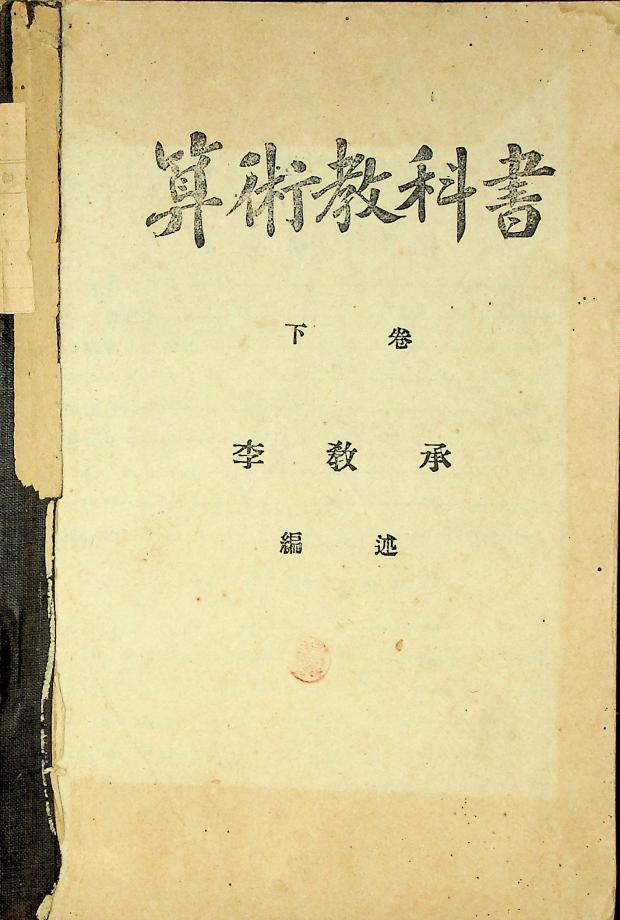 算術教科書
下卷
李敎承
編述